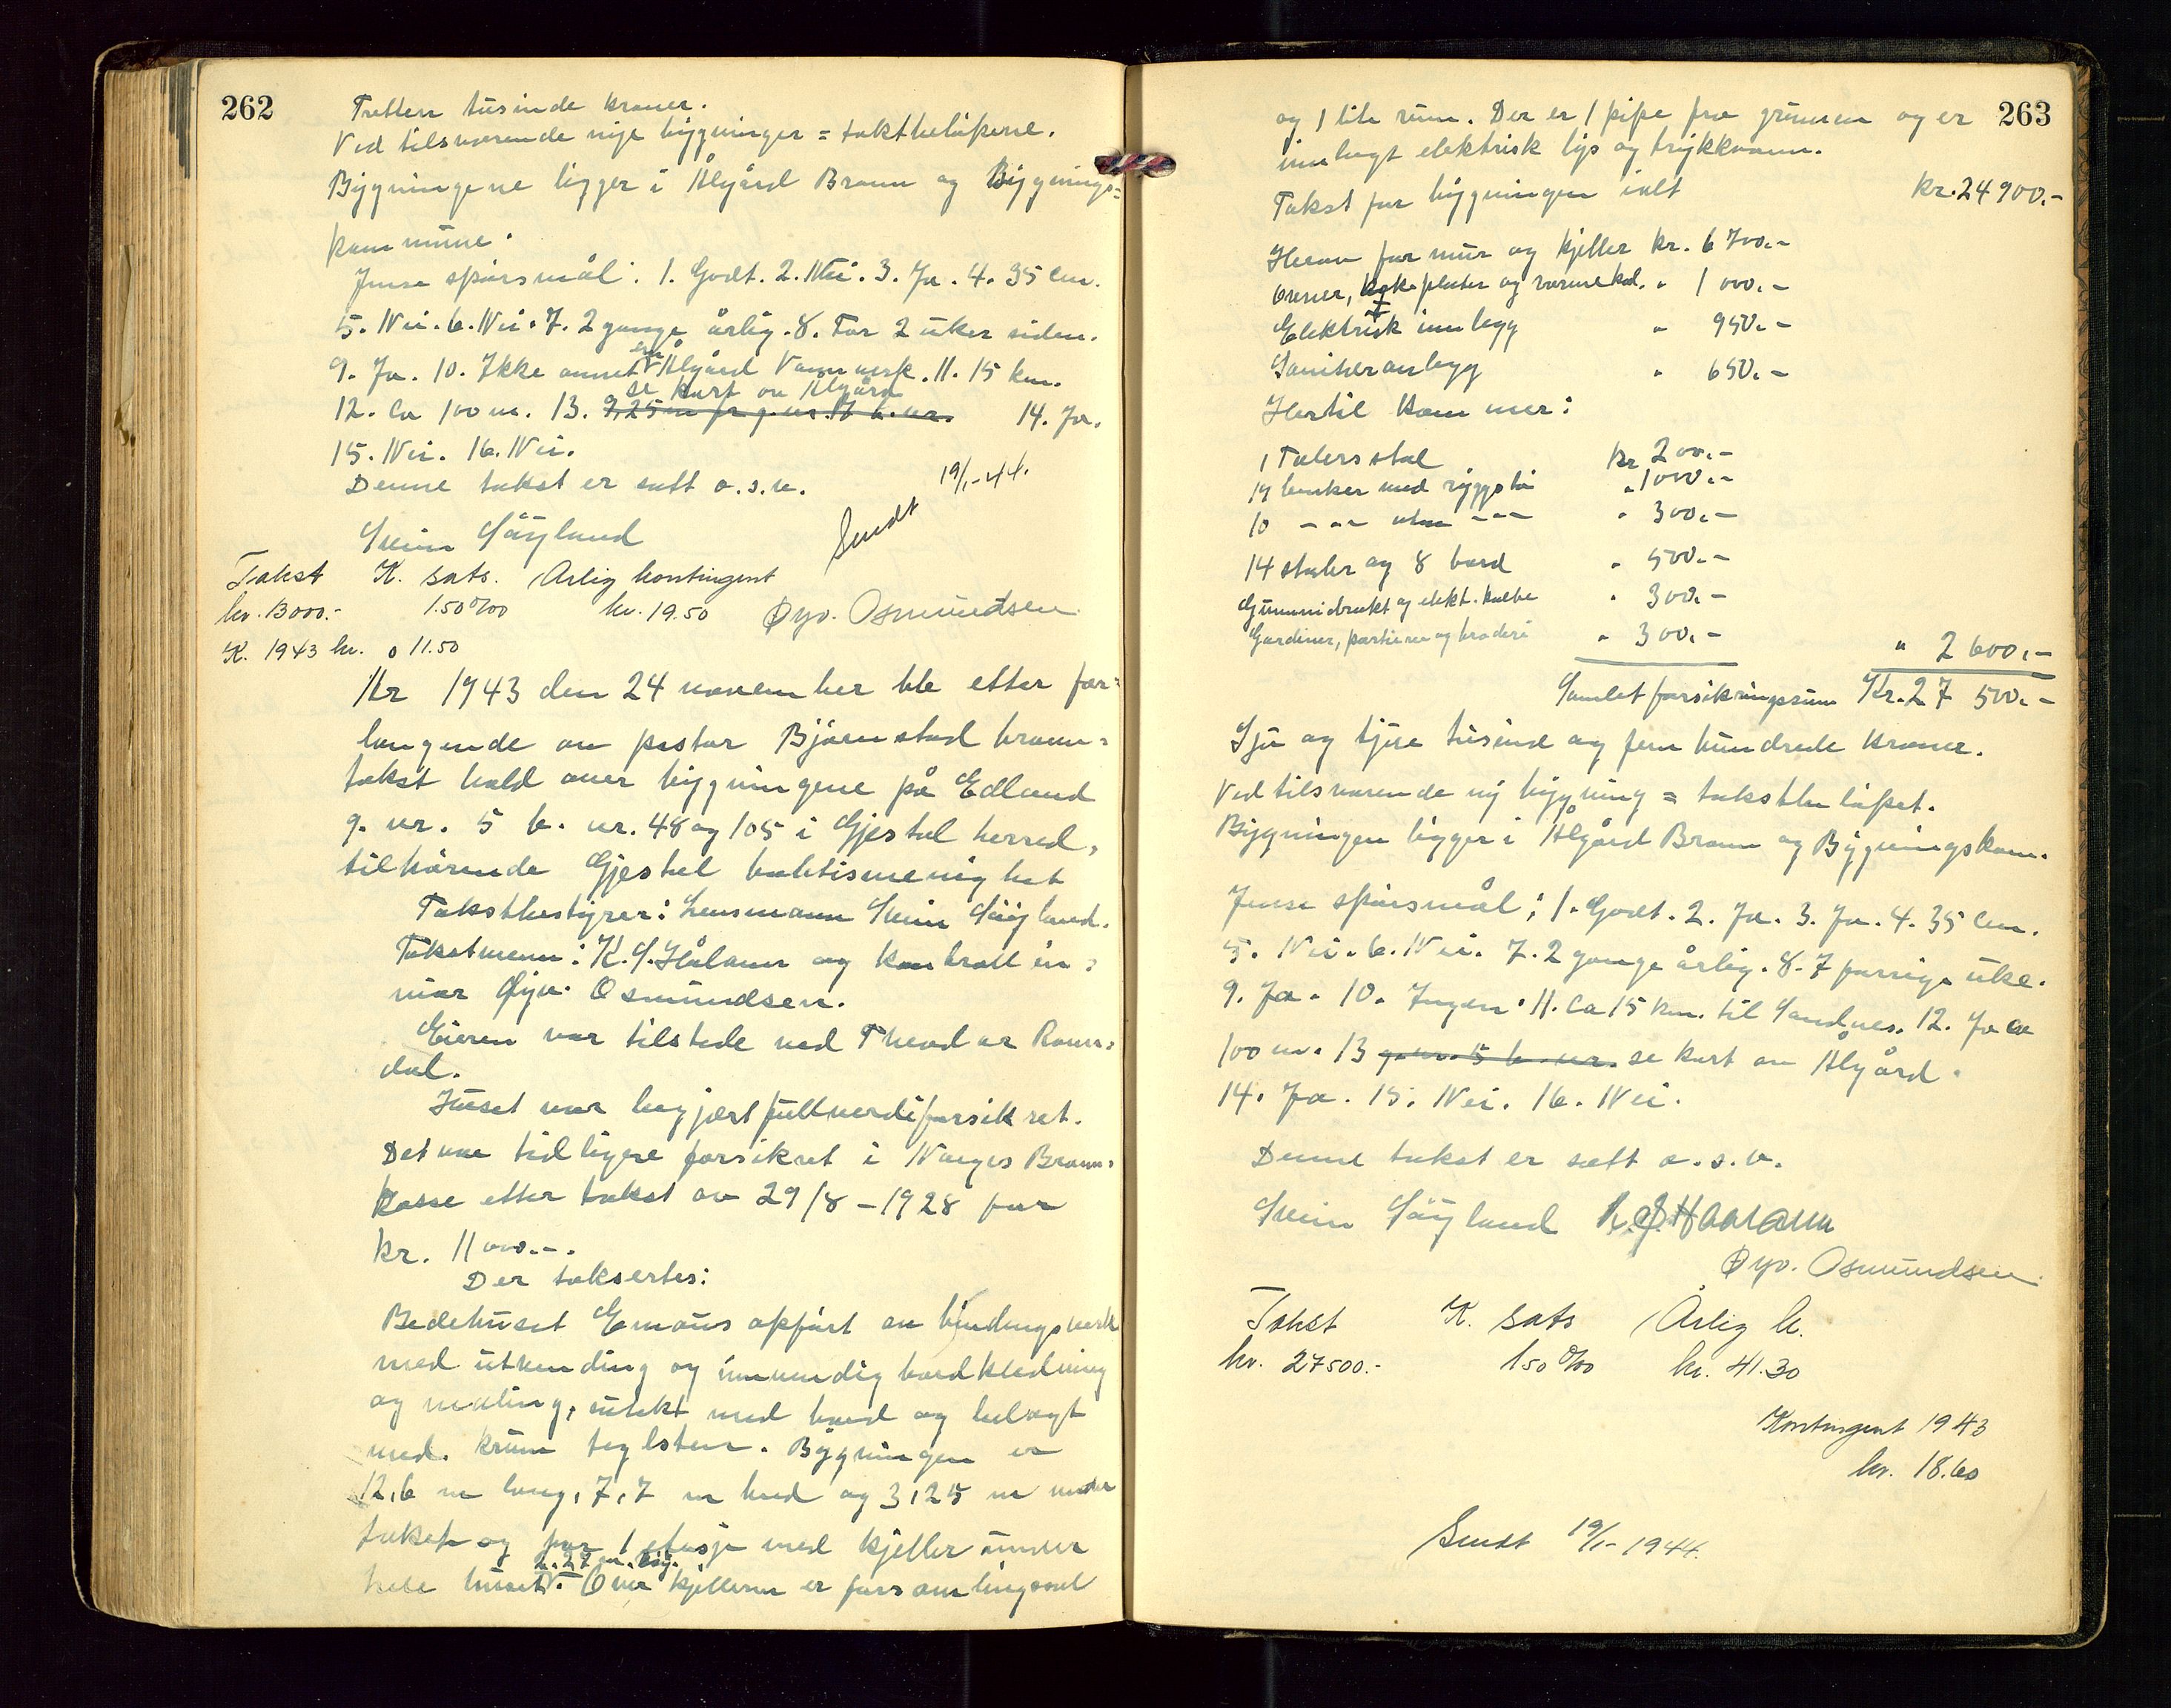 262
Tretten tusinde kroner.
Ved tilsvarende nye bygninger = takstbeløpene.
Bygningene ligger i Ålgård Brann og Bygnings=
kommune.
Jmse spørsmål: 1. Godt. 2. Nei. 3. Ja. 4. 35 cm.
5. Nei. 6. Nei. 7. 2 gange årlig. 8. For 2 uker siden.
9. Ja. 10. Ikke annet enn Ålgård Vannverk. 11. 15 km.
se kart ov Ålgård
12. Ca 100 m. 13. 14. Ja.
15. Nei. 16. Nei.
Denne takst er satt o.s.v.
Sendt 19/1-44.
Svein Søyland
Takst K. sats. Årlig kontingent
kr. 13000.- 1.50 ‰ kr. 19.50 Øyv. Osmundsen
K. 1943 kr. 11.50
År 1943 den 24 november ble etter for=
langende av pastor Bjørnstad brann=
takst hold over bygningene på Edland
g. nr. 5 b. nr. 48 og 105 i Gjestal herred,
tilhørende Gjestal baktismenighet
Takstbestyrer: Lensmann Svein Søyland.
Takstmenn: K. S. Hålann og kontrollin=
niør Øyv. Osmundsen.
Eieren var tilstede ved Theodor Rams=
dal.
Huset var begjært fullverdiforsikret.
Det var tidligere forsikret i Norges Brann=
kasse etter takst av 29/8 - 1928 for
kr. 11000.-.
Der taksertes:
Bedehuset Emaus oppført av bindingsverk
med utvending og innvendig bordkledning
og maling, utekt med bord og belagt
med krum teglsten. Bygningen er
12,6 m lang, 7,7 m bred og 3,25 m under
taket og har 1 etasje med kjeller under
2.27 m. høy.
hele huset. Over kjelleren er forsamlingssal
263
og 1 lite rum. Der er 1 pipe fra grunnen og er
innlagt elektrisk lys og trykkvann.
Takst for bygningen ialt kr. 24900.-
Herav for mur og kjeller kr. 6700.-
Ovner, kokeplater og varmekab. " 1000.-
Elektrisk innlegg " 950.-
Saniteranlegg " 650.-
Hertil kommer:
1 Talersstol kr 200.-
14 benker med ryggstø " 1000.-
10 - " - uten - " - " 300.-
14 stoler og 8 bord " 500.-
Gummidrakt og elekt. kolbe " 300.-
Gardiner, portierer og broderi " 300.- " 2600.-
Samlet forsikringsum Kr. 27 500.-
Sju og tjue tusind og fem hundrede kroner.
Ved tilsvarende ny bygning = takstbeløpet.
Bygningen ligger i Ålgård Brann og Bygningskom.
Jmse spørsmål; 1. Godt. 2. Ja. 3. Ja. 4. 35 cm.
5. Nei. 6. Nei. 7. 2 gange årlig. 8. I forrige uke.
9. Ja. 10. Ingen. 11. Ca 15 km. til Sandnes. 12. Ja ca
100 m. 13 g. nr. 5 b. nr. se kart ov Ålgård.
14. Ja. 15. Nei. 16. Nei.
Denne takst er satt o.s.v.
Svein Søyland K. S. Haaland
Øyv. Osmundsen
Takst K. sats Årlig k.
kr. 27500.- 1.50 ‰ kr. 41.30
Kontingent 1943
kr. 18.60
Sendt 19/1-1944.